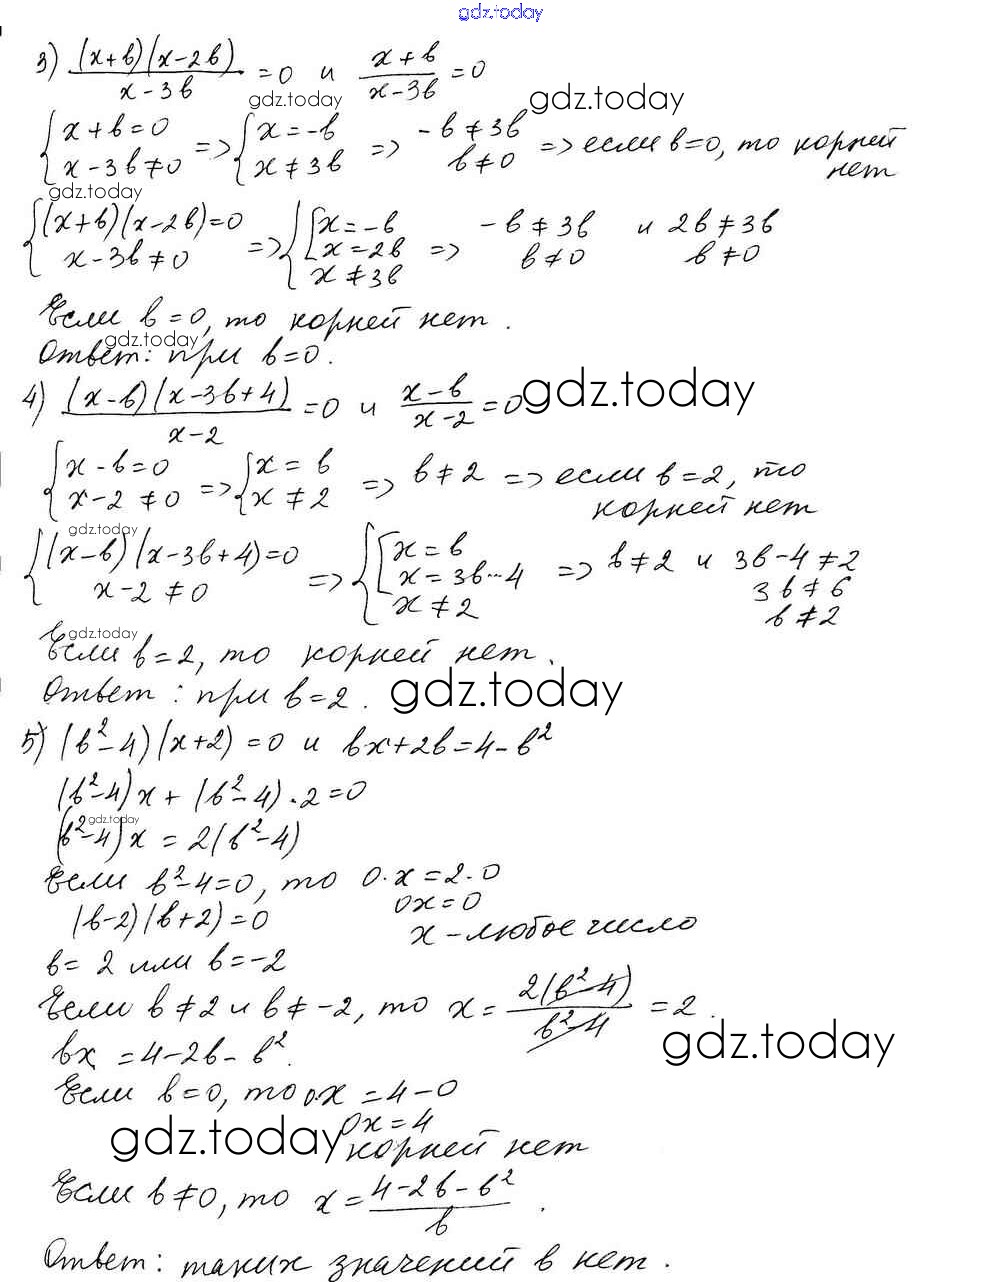 gdz.today
3) (x+b)(x-2b)/(x-3b) =0 и (x+b)/(x-3b) =0
gdz.today gdz.today
{x+b=0 x-3b≠0 => {x=-b x≠3b => -b≠3b b≠0 => если b=0, то корней нет
gdz.today
{(x+b)(x-2b)=0 x-3b≠0 => {[x=-b x=2b x≠3b => -b≠3b b≠0 и 2b≠3b b≠0
Если b=0, то корней нет.
gdz.today
Ответ: при b=0.
4) (x-b)(x-3b+4)/(x-2) =0 и (x-b)/(x-2) =0
gdz.today
{x-b=0 x-2≠0 => {x=b x≠2 => b≠2 => если b=2, то корней нет
gdz.today
{(x-b)(x-3b+4)=0 x-2≠0 => {[x=b x=3b-4 x≠2 => b≠2 и 3b-4≠2 3b≠6 b≠2
gdz.today
Если b=2, то корней нет.
Ответ: при b=2.
gdz.today
5) (b²-4)(x+2)=0 и bx+2b=4-b²
(b²-4)x+(b²-4)·2=0
gdz.today
(b²-4)x=2(b²-4)
Если b²-4=0, то 0·x=2·0
(b-2)(b+2)=0 0x=0
x-любое число
b=2 или b=-2
Если b≠2 и b≠-2, то x= 2(b²-4)/(b²-4) =2.
gdz.today
bx=4-2b-b².
Если b=0, то 0x=4-0
0x=4
gdz.today
корней нет
Если b≠0, то x= (4-2b-b²)/b.
Ответ: таких значений b нет.